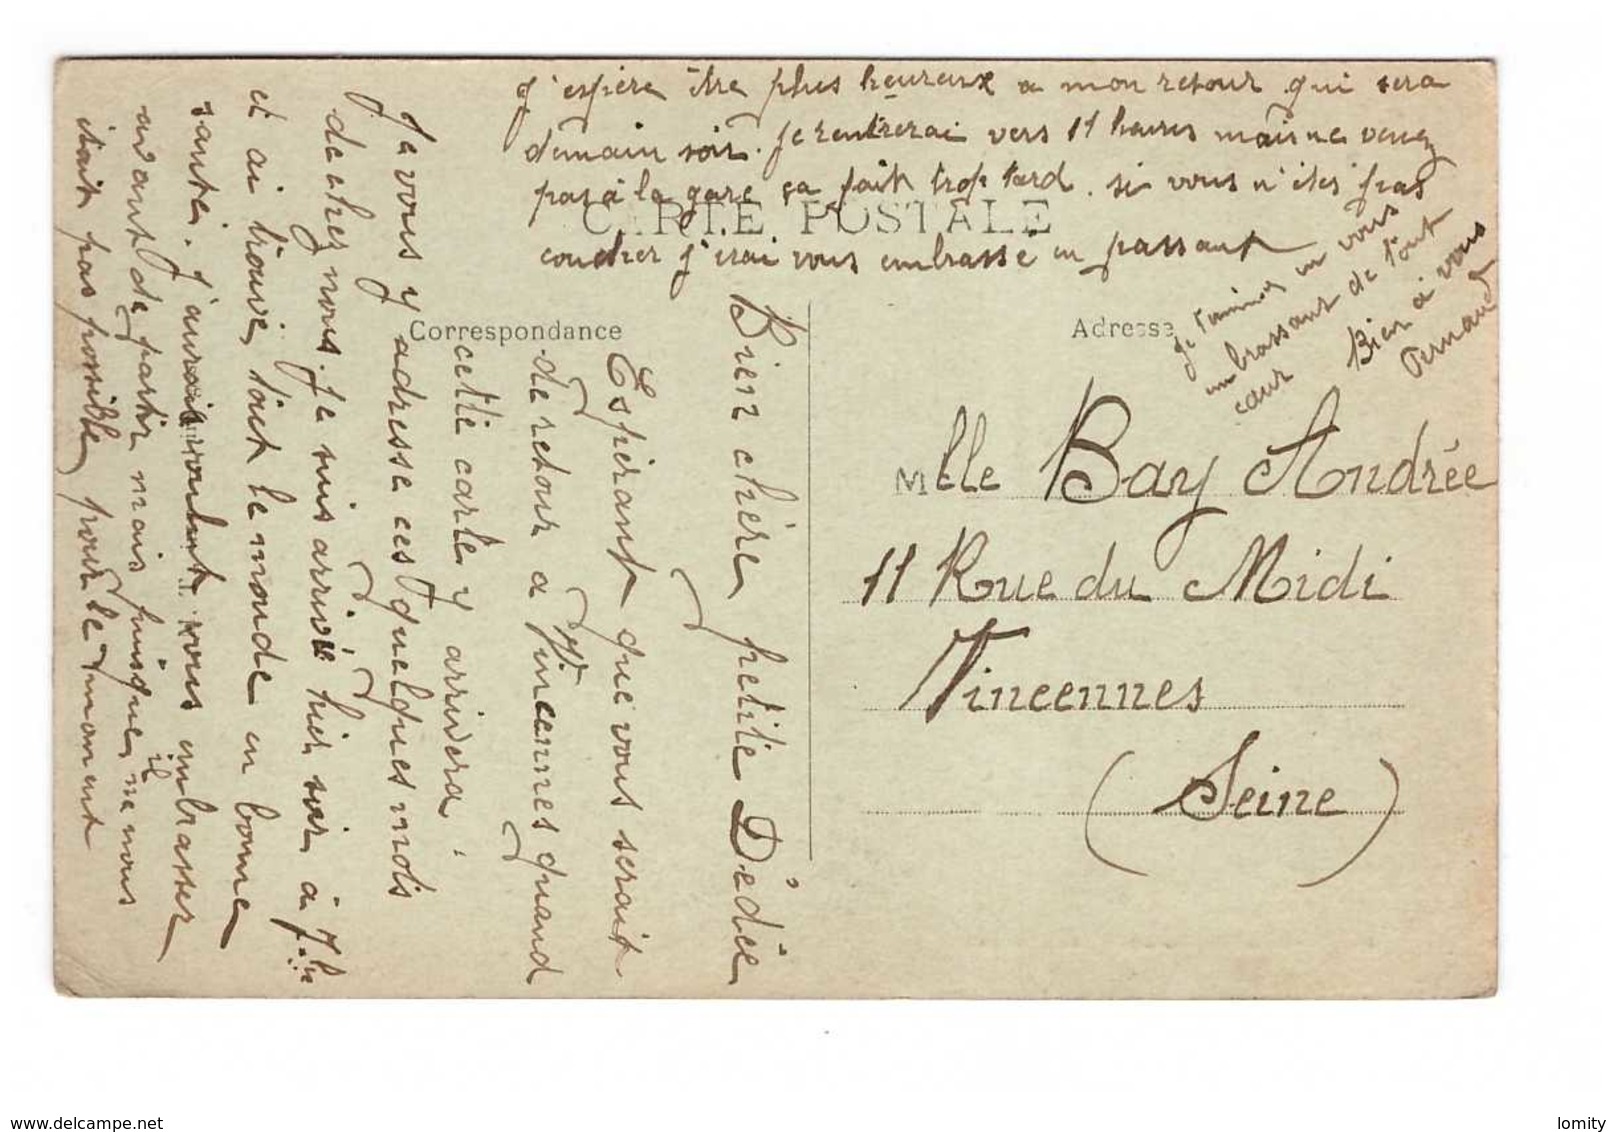 Bien chère petite Dédée
Espérant que vous serait
de retour a Vincennes quand
cette carte y arrivera.
Je vous y adresse ces quelques mots
de chez nous. Je suis arrivé hier soir à 7h
et ai trouvé tout le monde en bonne
santé. J'aurait voulut vous embrasser
avant de partir mais puisque il ne nous
était pas possible pour le moment
J'espère être plus heureux a mon retour qui sera
demain soir. Je rentrerai vers 11 heures mais ne venez
pas à la gare ça fait trop tard. si vous n'êtes pas
coucher j'irai vous embrassé en passant
Je termine en vous
embrassant de tout
cœur
Bien à vous
Fernand
CARTE POSTALE
Correspondance
Adresse
Mlle Bay Andrée
11 Rue du Midi
Vincennes
(Seine)
www.delcampe.net
lomity